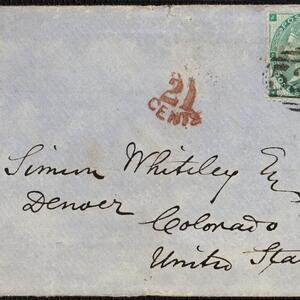 21
CENTS
Simeon Whiteley Esq
Denver
Colorado
United Sta